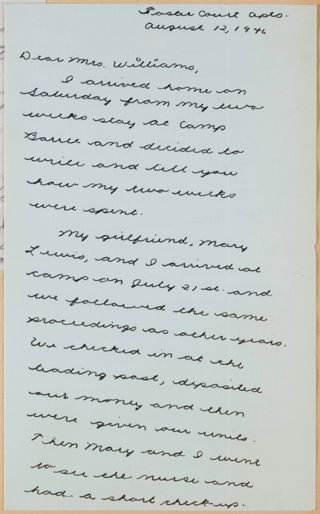 Foster Court Apts.
August 12, 1946
Dear Mrs. Williams,
I arrived home on
Saturday from my two
weeks stay at Camp
Barree and decided to
write and tell you
how my two weeks
were spent.
My girlfriend, Mary
Lewis, and I arrived at
camp on July 21st. and
we followed the same
proceedings as other years.
We checked in at the
trading post, deposited
our money and then
were given our units.
Then Mary and I went
to see the nurse and
had a short check-up.